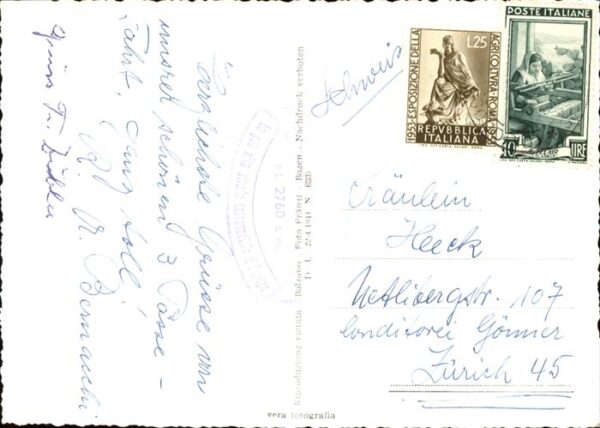 Herzlichste Grüsse von
unsrer schönen 3 Pässe-
fahrt, ganz toll!
R. Bernacchi
Gruss Fr.
Riproduzione vietata Bolzano Foto Fränzl - Bozen - Nachdruck verboten
vera fotografia
Schweiz
1953 ESPOSIZIONE DELLA AGRICOLTURA ROMA
L.25
REPVBBLICA
ITALIANA
POSTE ITALIANE
10 LIRE
Fräulein
Heeck
Uetlibergstr. 107
Conditorei Gönner
Zürich 45